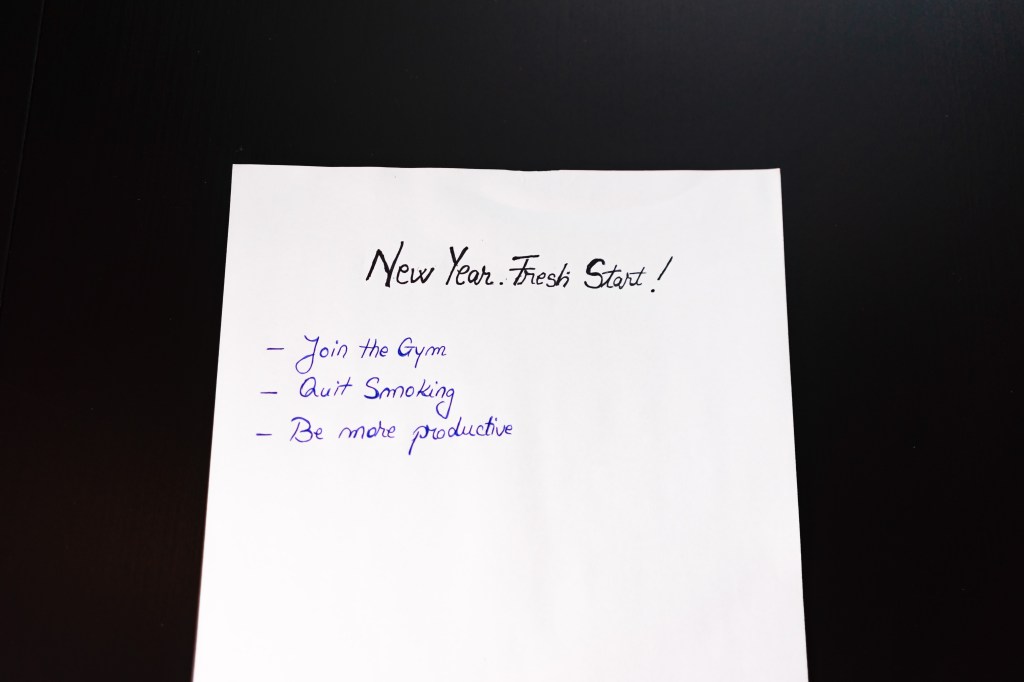 New Year. Fresh Start!
- Join the Gym
- Quit Smoking
- Be more productive